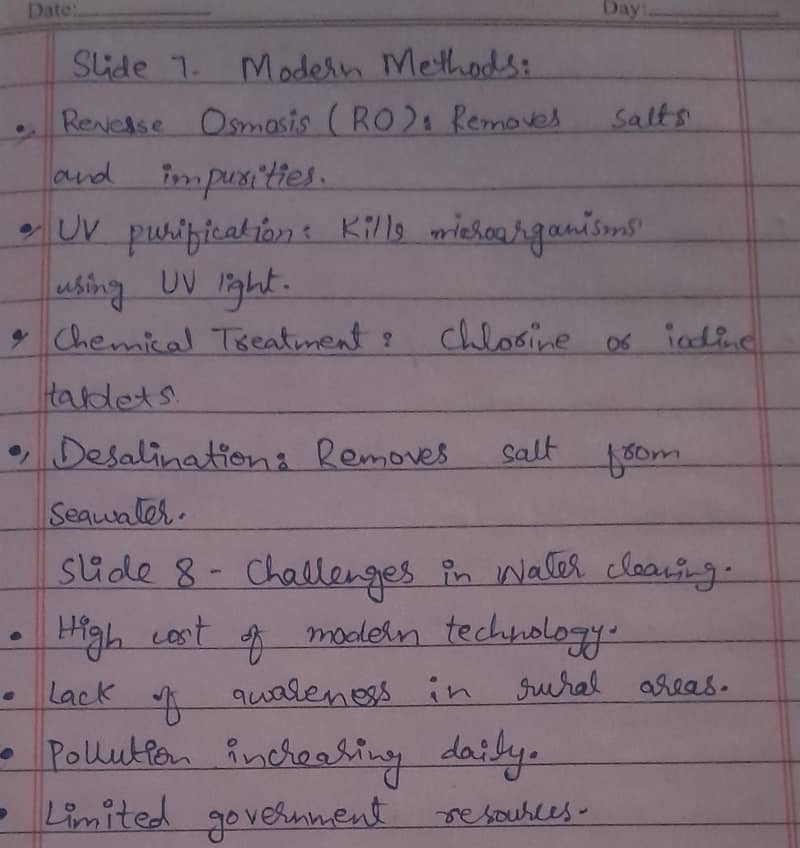 Date:
Day:
Slide 7. Modern Methods:
Reverse Osmosis (RO): Removes salts
and impurities.
UV purification: Kills microarganisms
using UV light.
Chemical Treatment: Chlorine or iodine
tablets.
Desalination: Removes salt from
seawater.
Slide 8 - Challenges in Water cleaning.
High cost of modern technology.
Lack of awareness in rural areas.
Pollution increasing daily.
Limited government resources.